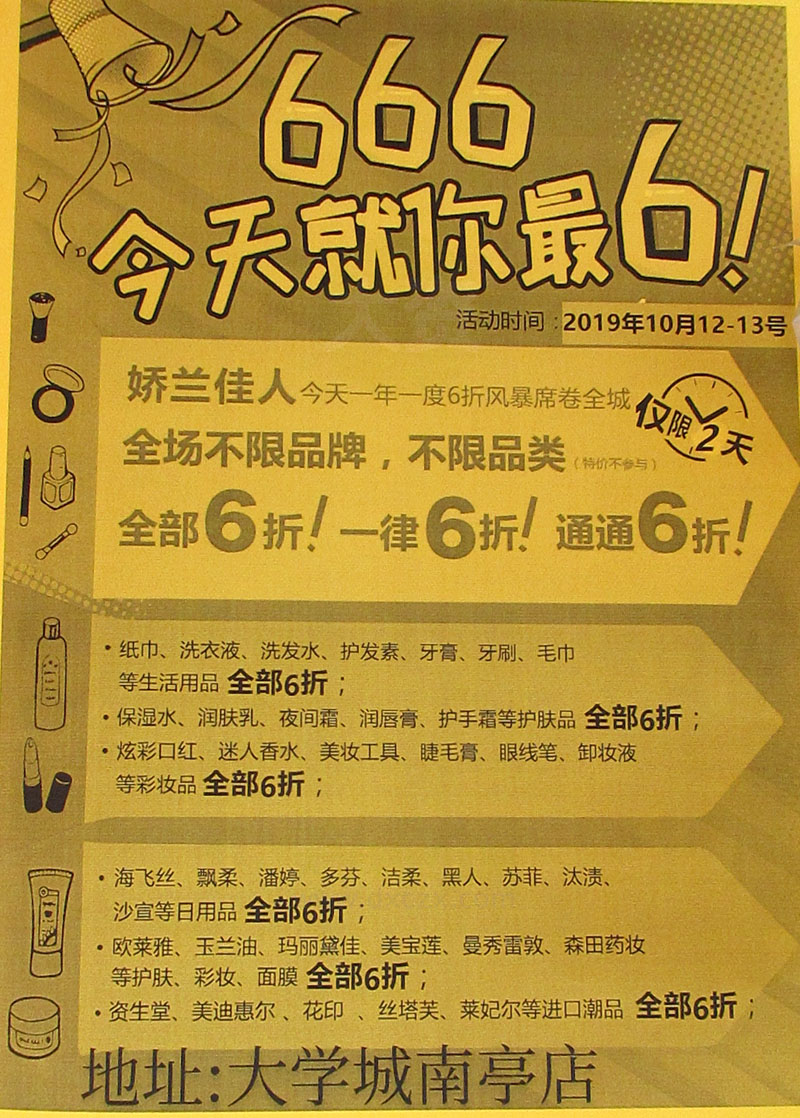 666
今天就你最6!
活动时间：2019年10月12-13号
娇兰佳人今天一年一度6折风暴席卷全城
仅限2天
全场不限品牌，不限品类（特价不参与）
全部6折！一律6折！通通6折！
·纸巾、洗衣液、洗发水、护发素、牙膏、牙刷、毛巾
等生活用品 全部6折；
·保湿水、润肤乳、夜间霜、润唇膏、护手霜等护肤品 全部6折；
·炫彩口红、迷人香水、美妆工具、睫毛膏、眼线笔、卸妆液
等彩妆品 全部6折；
·海飞丝、飘柔、潘婷、多芬、洁柔、黑人、苏菲、汰渍、
沙宣等日用品 全部6折；
·欧莱雅、玉兰油、玛丽黛佳、美宝莲、曼秀雷敦、森田药妆
等护肤、彩妆、面膜 全部6折；
·资生堂、美迪惠尔、花印、丝塔芙、莱妃尔等进口潮品 全部6折；
地址:大学城南亭店